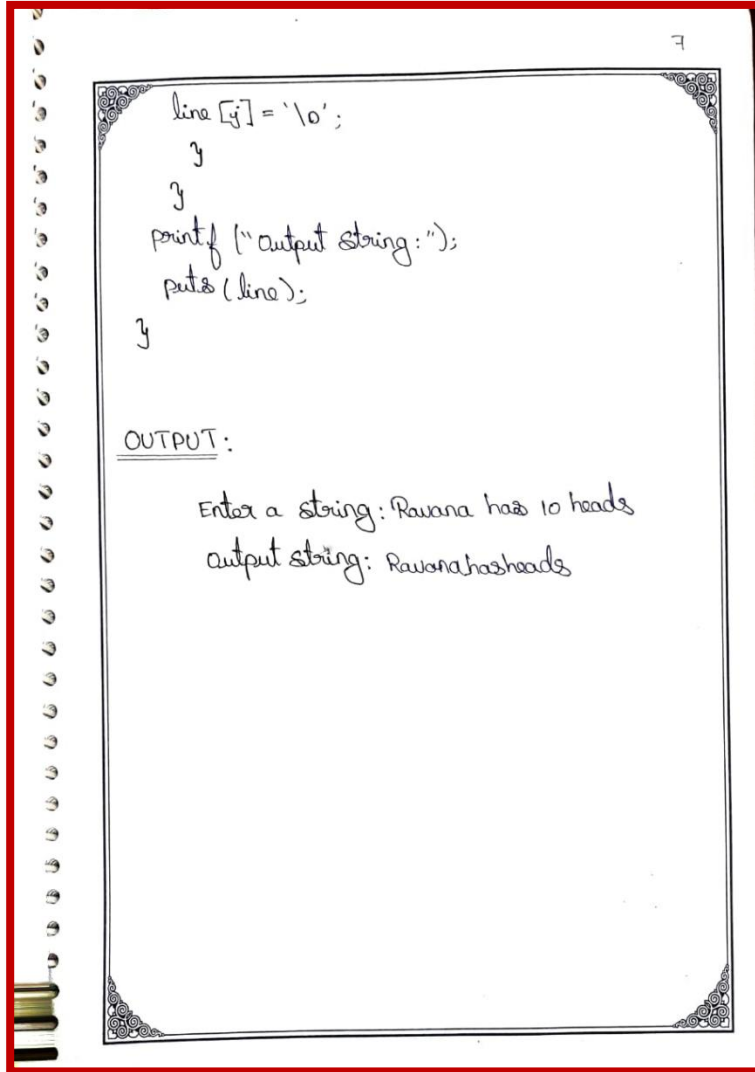 7
line [j] = '\0';
}
}
printf ("Output string:");
puts (line);
}
OUTPUT:
Enter a string: Ravana has 10 heads
Output string: Ravanahasheads